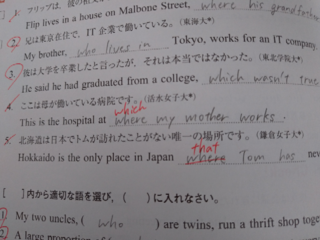 1. フリップは、彼の祖父
Flip lives in a house on Malbone Street, where his grandfather
2. 兄は東京在住で、IT 企業で働いている。(東海大*)
My brother, who lives in Tokyo, works for an IT company.
3. 彼は大学を卒業したと言ったが、それは本当ではなかった。(東北学院大)
He said he had graduated from a college, which wasn't true
4. ここは母が働いている病院です。(活水女子大*)
which
This is the hospital at where my mother works.
5. 北海道は日本でトムが訪れたことがない唯一の場所です。(鎌倉女子大*)
that
Hokkaido is the only place in Japan where Tom has nev
[ ]内から適切な語を選び,( )に入れなさい。
1 My two uncles, ( who ) are twins, run a thrift shop toge
2 A large proportion